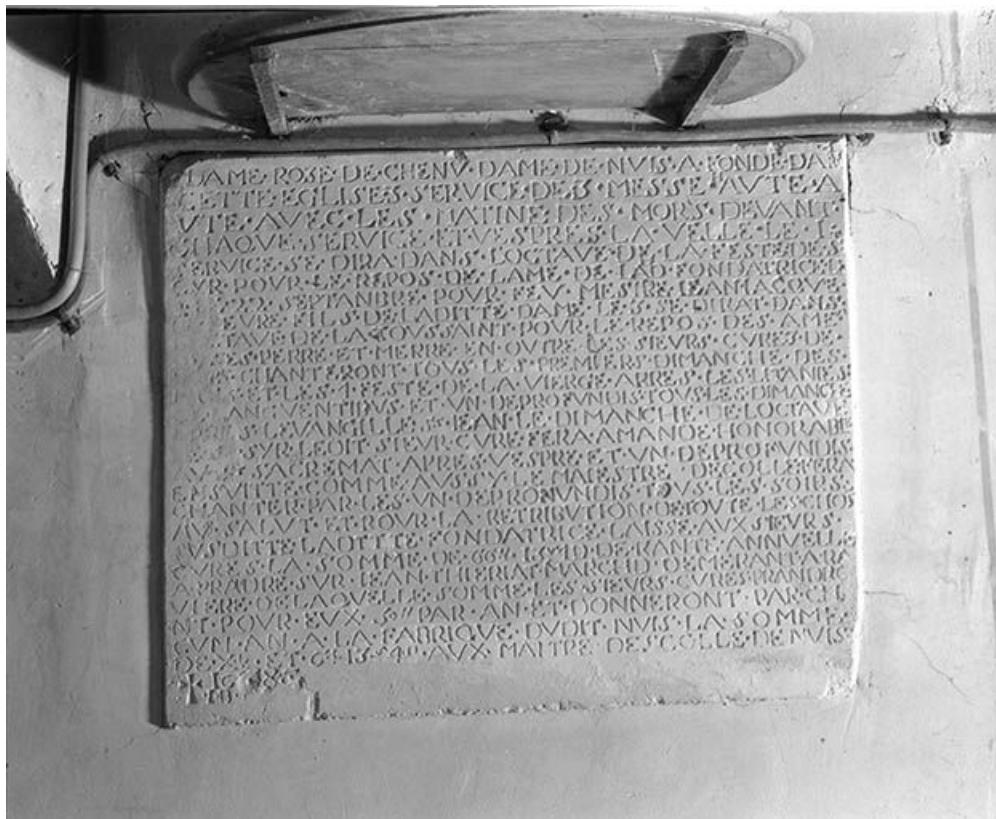 DAME·ROSE·DE·CHENV·DAME·DE·NVIS·A·FONDE·DA
CETTE·EGLISE·SERVICE·DE·MESSE·AVTE·A
VTE·AVEC·LES·MATINE·DES·MORS·DEVANT·
CHAQVE·SERVICE·ET·VESPRES·LA·VELLE·LE·I
SERVICE·SE·DIRA·DANS·LOCTAVE·DE·LA·FESTE·DE·S
POVR·LE·REPOS·DE·LAME·DE·LAD·FONDATRICE
22·SEPTANBRE·POVR·FEV·MESIRE·IEAN·IACQVE
FILS·DE·LADITTE·DAME·LE·SE·DIRAT·DANS
TAVE·DE·LA·TOVSSAINT·POVR·LE·REPOS·DES·AME
SES·PERRE·ET·MERRE·EN·OVTRE·LES·SIEVRS·CVRES·DE
CHANTERONT·TOVS·LES·PREMIERS·DIMANCHE·DES
ET·LES·4·FESTE·DE·LA·VIERGE·APRES·LES·LITANIES
ET·VN·DEPROFVNDIS·TOVS·LES·DIMANCHE
LEVANGILLE·St·IEAN·LE·DIMANCHE·DE·LOCTAVE
SVR·LEDIT·SIEVR·CVRE·FERA·AMANDE·HONORABLE
SACREMAT·APRES·VESPRE·ET·VN·DEPROFVNDIS
ENSVITTE·COMME·AVSSY·LE·MAESTRE·DECOLLE·FERA
CHANTER·PAR·LES·VN·DEPROFVNDIS·TOVS·LES·SOIRS
AV·SALVT·ET·POVR·LA·RETRIBVTION·DE·TOVTE·LES·CHOS
SVSDITTE·LADITTE·FONDATRICE·LAISSE·AVX·SIEVRS·
CVRES·LA·SOMME·DE·DE·RANTE·ANNVELLE
A·PRADRE·SVR·IEAN·THIERIAT·MARCHD·DEMERANT·A·RA
VIERE·DE·LAQVELLE·SOMME·LES·SIEVRS·CVRES·PRANDRO
NT·POVR·EVX·PAR·AN·ET·DONNERONT·PAR·CH
CVN·AN·A·LA·FABRIQVE·DVDIT·NVIS·LA·SOMME·
DE·ET·AVX·MAITRE·DESCOLLE·DE·NVIS